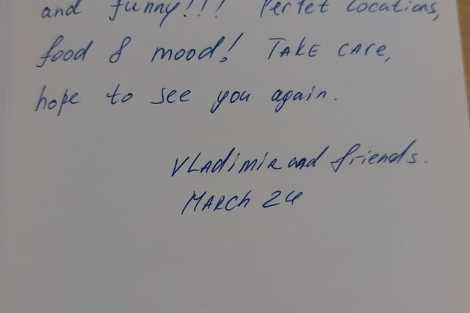 and funny!!! Perfet locations,
food & mood! TAKE CARE,
hope to see you again.
VLADIMIR and friends.
MARCH 24